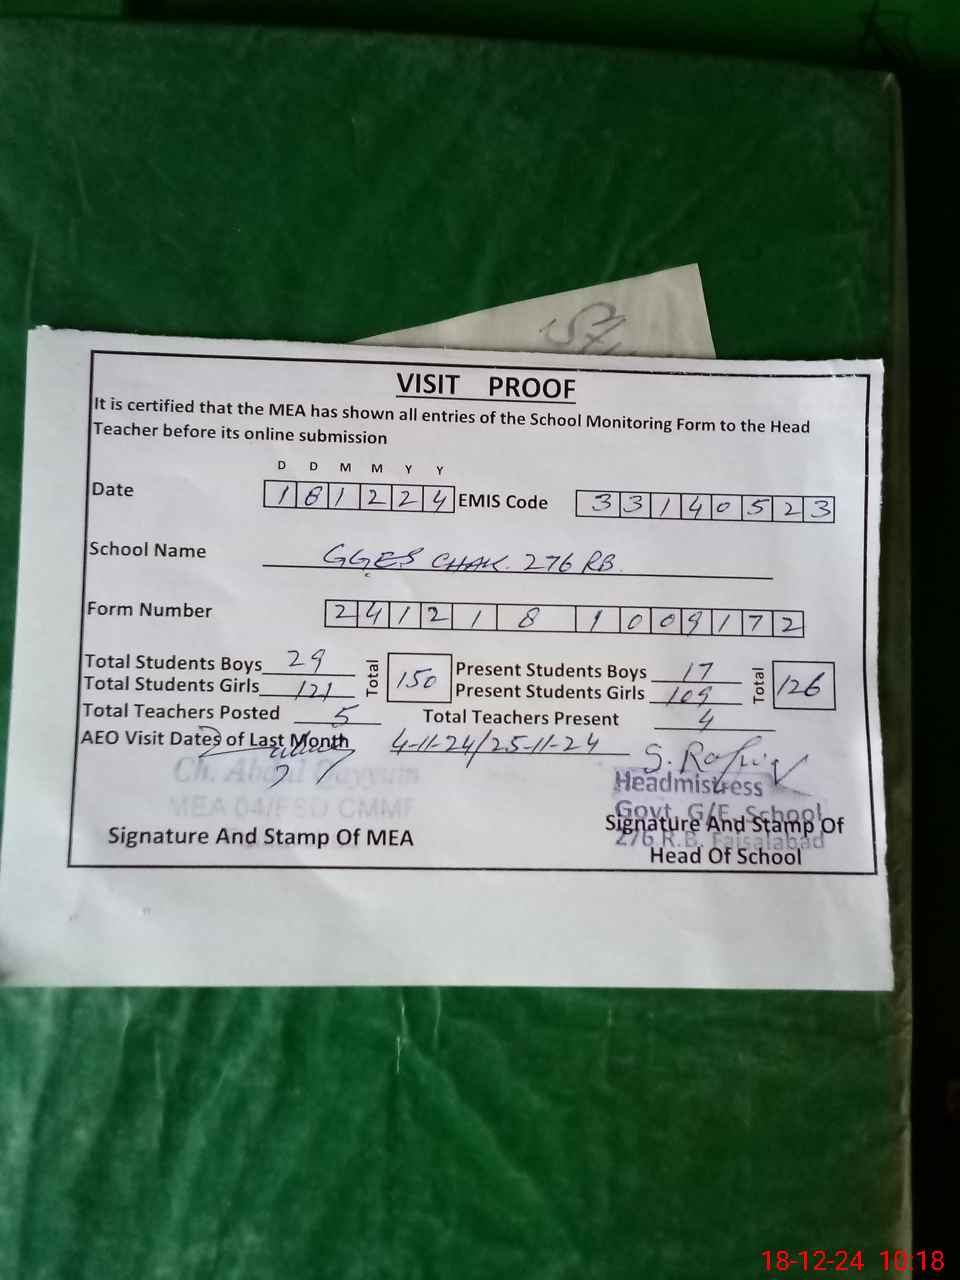 VISIT PROOF
It is certified that the MEA has shown all entries of the School Monitoring Form to the Head
Teacher before its online submission
D D M M Y Y
Date 1 8 1 2 2 4 EMIS Code 3 3 1 4 0 5 2 3
School Name GGES CHAK. 276 RB.
Form Number 2 4 1 2 1 8 1 0 0 9 1 7 2
Total Students Boys 29 Total 150 Present Students Boys 17 Total 126
Total Students Girls 121 Present Students Girls 109
Total Teachers Posted 5 Total Teachers Present 4
AEO Visit Dates of Last Month 4-11-24/25-11-24
Ch. Abdul Qayyum
MEA 04/FSD CMMF
Signature And Stamp Of MEA
Headmistress
Govt. G/E. School
276 R.B. Faisalabad
Signature And Stamp Of
Head Of School
18-12-24 10:18